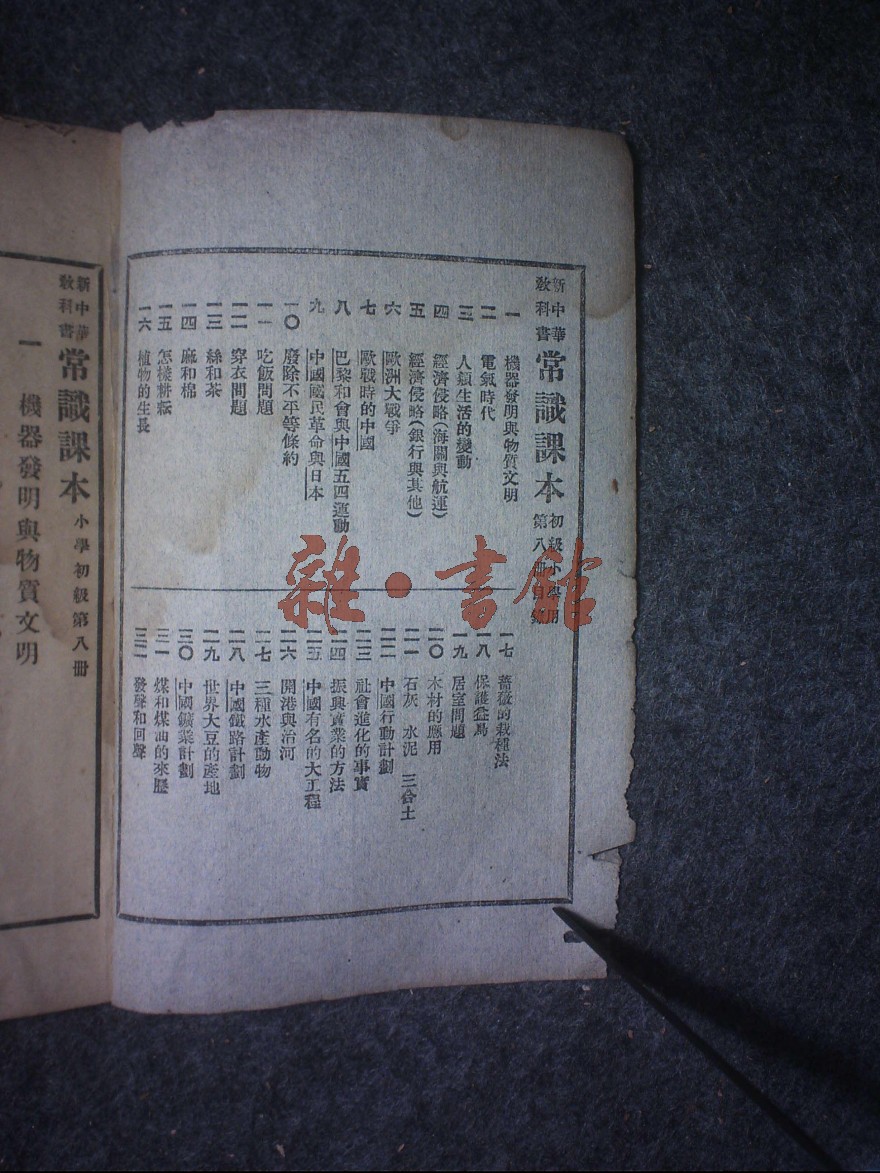 新中華
教科書
常識課本
初級小學用
第八冊目錄
一 機器發明與物質文明
二 電氣時代
三 人類生活的變動
四 經濟侵略(海關與航運)
五 經濟侵略(銀行與其他)
六 歐洲大戰爭
七 歐戰時的中國
八 巴黎和會與中國五四運動
九 中國國民革命與日本
一〇 廢除不平等條約
一一 吃飯問題
一二 穿衣問題
一三 絲和茶
一四 麻和棉
一五 怎樣耕耘
一六 植物的生長
一七 薔薇的栽種法
一八 保護益鳥
一九 居室問題
二〇 木材的應用
二一 石灰 水泥 三合土
二二 中國行動計劃
二三 社會進化的事實
二四 振興實業的方法
二五 中國有名的大工程
二六 開港與治河
二七 三種水產動物
二八 中國鐵路計劃
二九 世界大豆的產地
三〇 中國鑛業計劃
三一 煤和煤油的來歷
三二 發聲和回聲
一
新中華
教科書
常識課本
小學初級第八冊
一 機器發明與物質文明
雜·書館